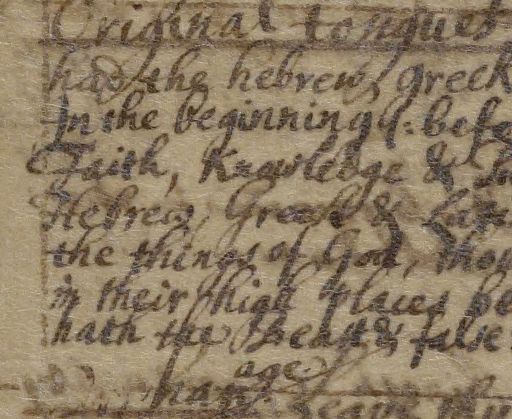 Original tongues
had the hebrew, greek
In the beginning (: befo
Faith, Knowledge &
Hebrew, Greek & Lat
the things of God, thou
in their high places be
hath the Beast & false
age